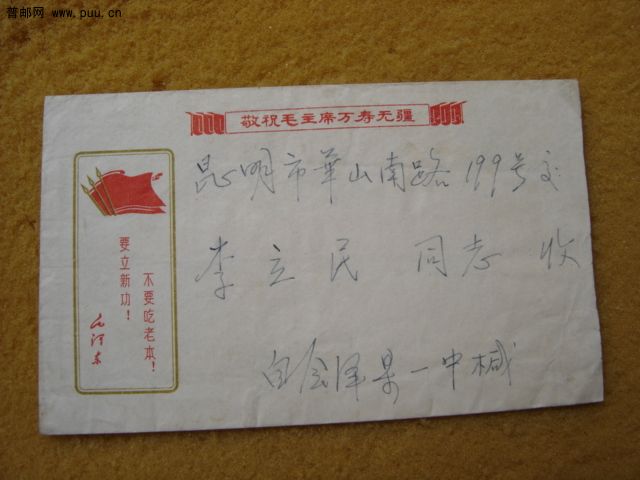 普邮网 www.puu.cn
敬祝毛主席万寿无疆
昆明市華山南路199号交
李立民 同志 收
自会泽县一中缄
不要吃老本！
要立新功！
毛泽东